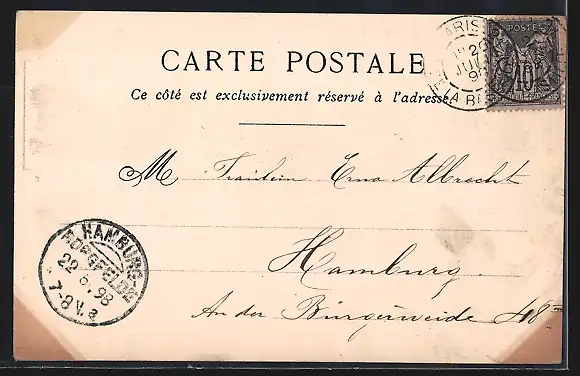 PARIS
20
JUIL
98
POSTES
10
CARTE POSTALE
Ce côté est exclusivement réservé à l'adresse.
M Fräulein Erna Albrecht
Hamburg.
An der Bürgerweide 48
HAMBURG-
BORGFELDE
22 6. 98
7-8 V.